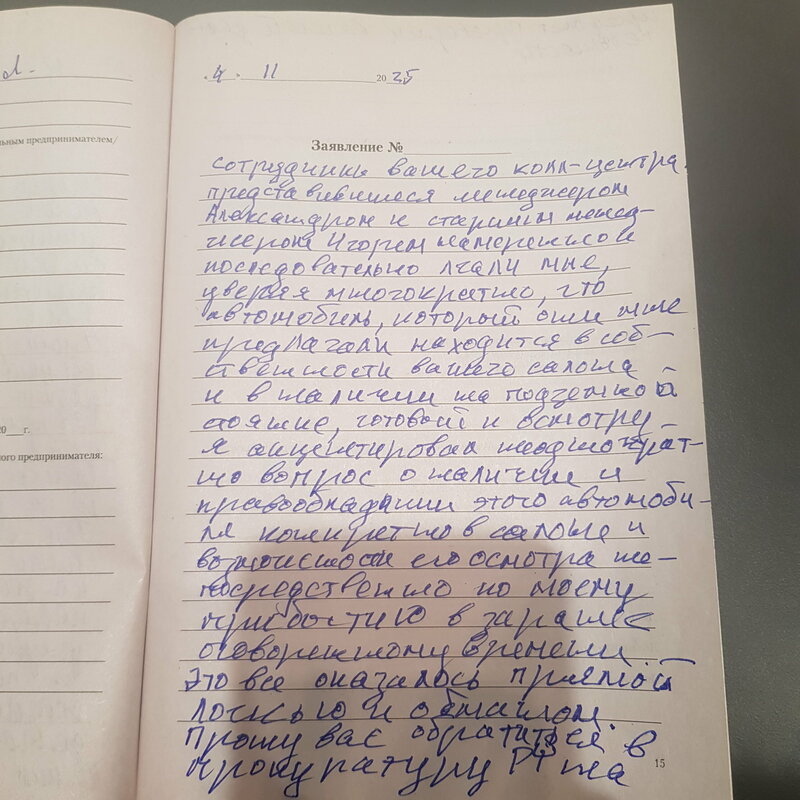 d.
льным предпринимателем/
20___г.
ного предпринимателя:
«4» 11 2025
Заявление №
сотрудники вашего колл-центра,
представившиеся менеджером
Александром и старшим менед-
жером Игорем намеренно и
последовательно лгали мне,
уверяя многократно, что
автомобиль, который они мне
предлагали находится в соб-
ственности вашего салона
и в наличии на подземной
стоянке, готовый к осмотру.
Я акцентировал неоднократ-
но вопрос о наличии и
правообладании этого автомоби-
ля конкретно в салоне и
возможности его осмотра не-
посредственно по моему
прибытию в заранее
оговоренному времени.
Это все оказалось прямой
ложью и обманом.
Прошу вас обратиться в
прокуратуру РФ на
15